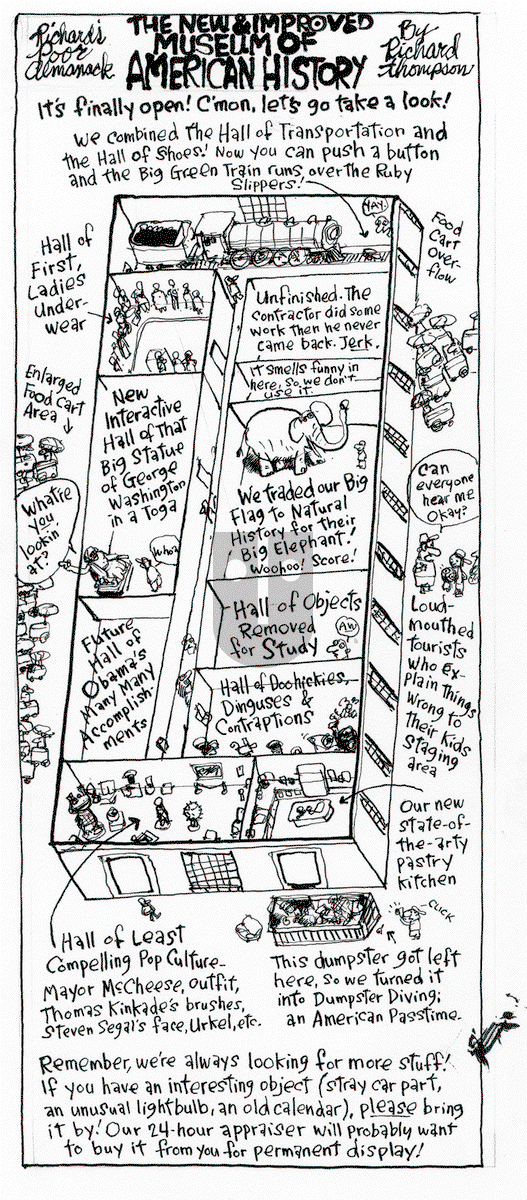 Richard's
Poor
Almanack
THE NEW & IMPROVED
MUSEUM OF
AMERICAN HISTORY
By
Richard
Thompson
It's finally open! C'mon, let's go take a look!
We combined the Hall of Transportation and
the Hall of Shoes! Now you can push a button
and the Big Green Train runs over the Ruby
Slippers!
YAY!
Food
Cart
Over-
flow
Hall of
First,
Ladies
Under-
wear
Unfinished. The
contractor did some
work then he never
came back. Jerk.
It smells funny in
here, so we don't
use it.
Enlarged
Food Cart
Area
New
Interactive
Hall of That
Big Statue
of George
Washington
in a Toga
What're
you
lookin'
at?
Whoa
We traded our Big
Flag to Natural
History for their
Big Elephant!
Woohoo! Score!
Can
everyone
hear me
Okay?
Loud-
mouthed
tourists
who Ex-
plain things
wrong to
their kids
staging
area
Hall of Objects
Removed
for Study
Future
Hall of
Obama's
Many Many
Accomplish-
ments
Hall of Doohickies,
Dinguses &
Contraptions
Our new
state-of-
the-arty
pastry
kitchen
CLICK
Hall of Least
Compelling Pop Culture-
Mayor McCheese, outfit,
Thomas Kinkade's brushes,
Steven Segal's face, Urkel, etc.
This dumpster got left
here, so we turned it
into Dumpster Diving;
an American Passtime.
Remember, we're always looking for more stuff!
If you have an interesting object (stray car part,
an unusual lightbulb, an old calendar), please bring
it by! Our 24-hour appraiser will probably want
to buy it from you for permanent display!